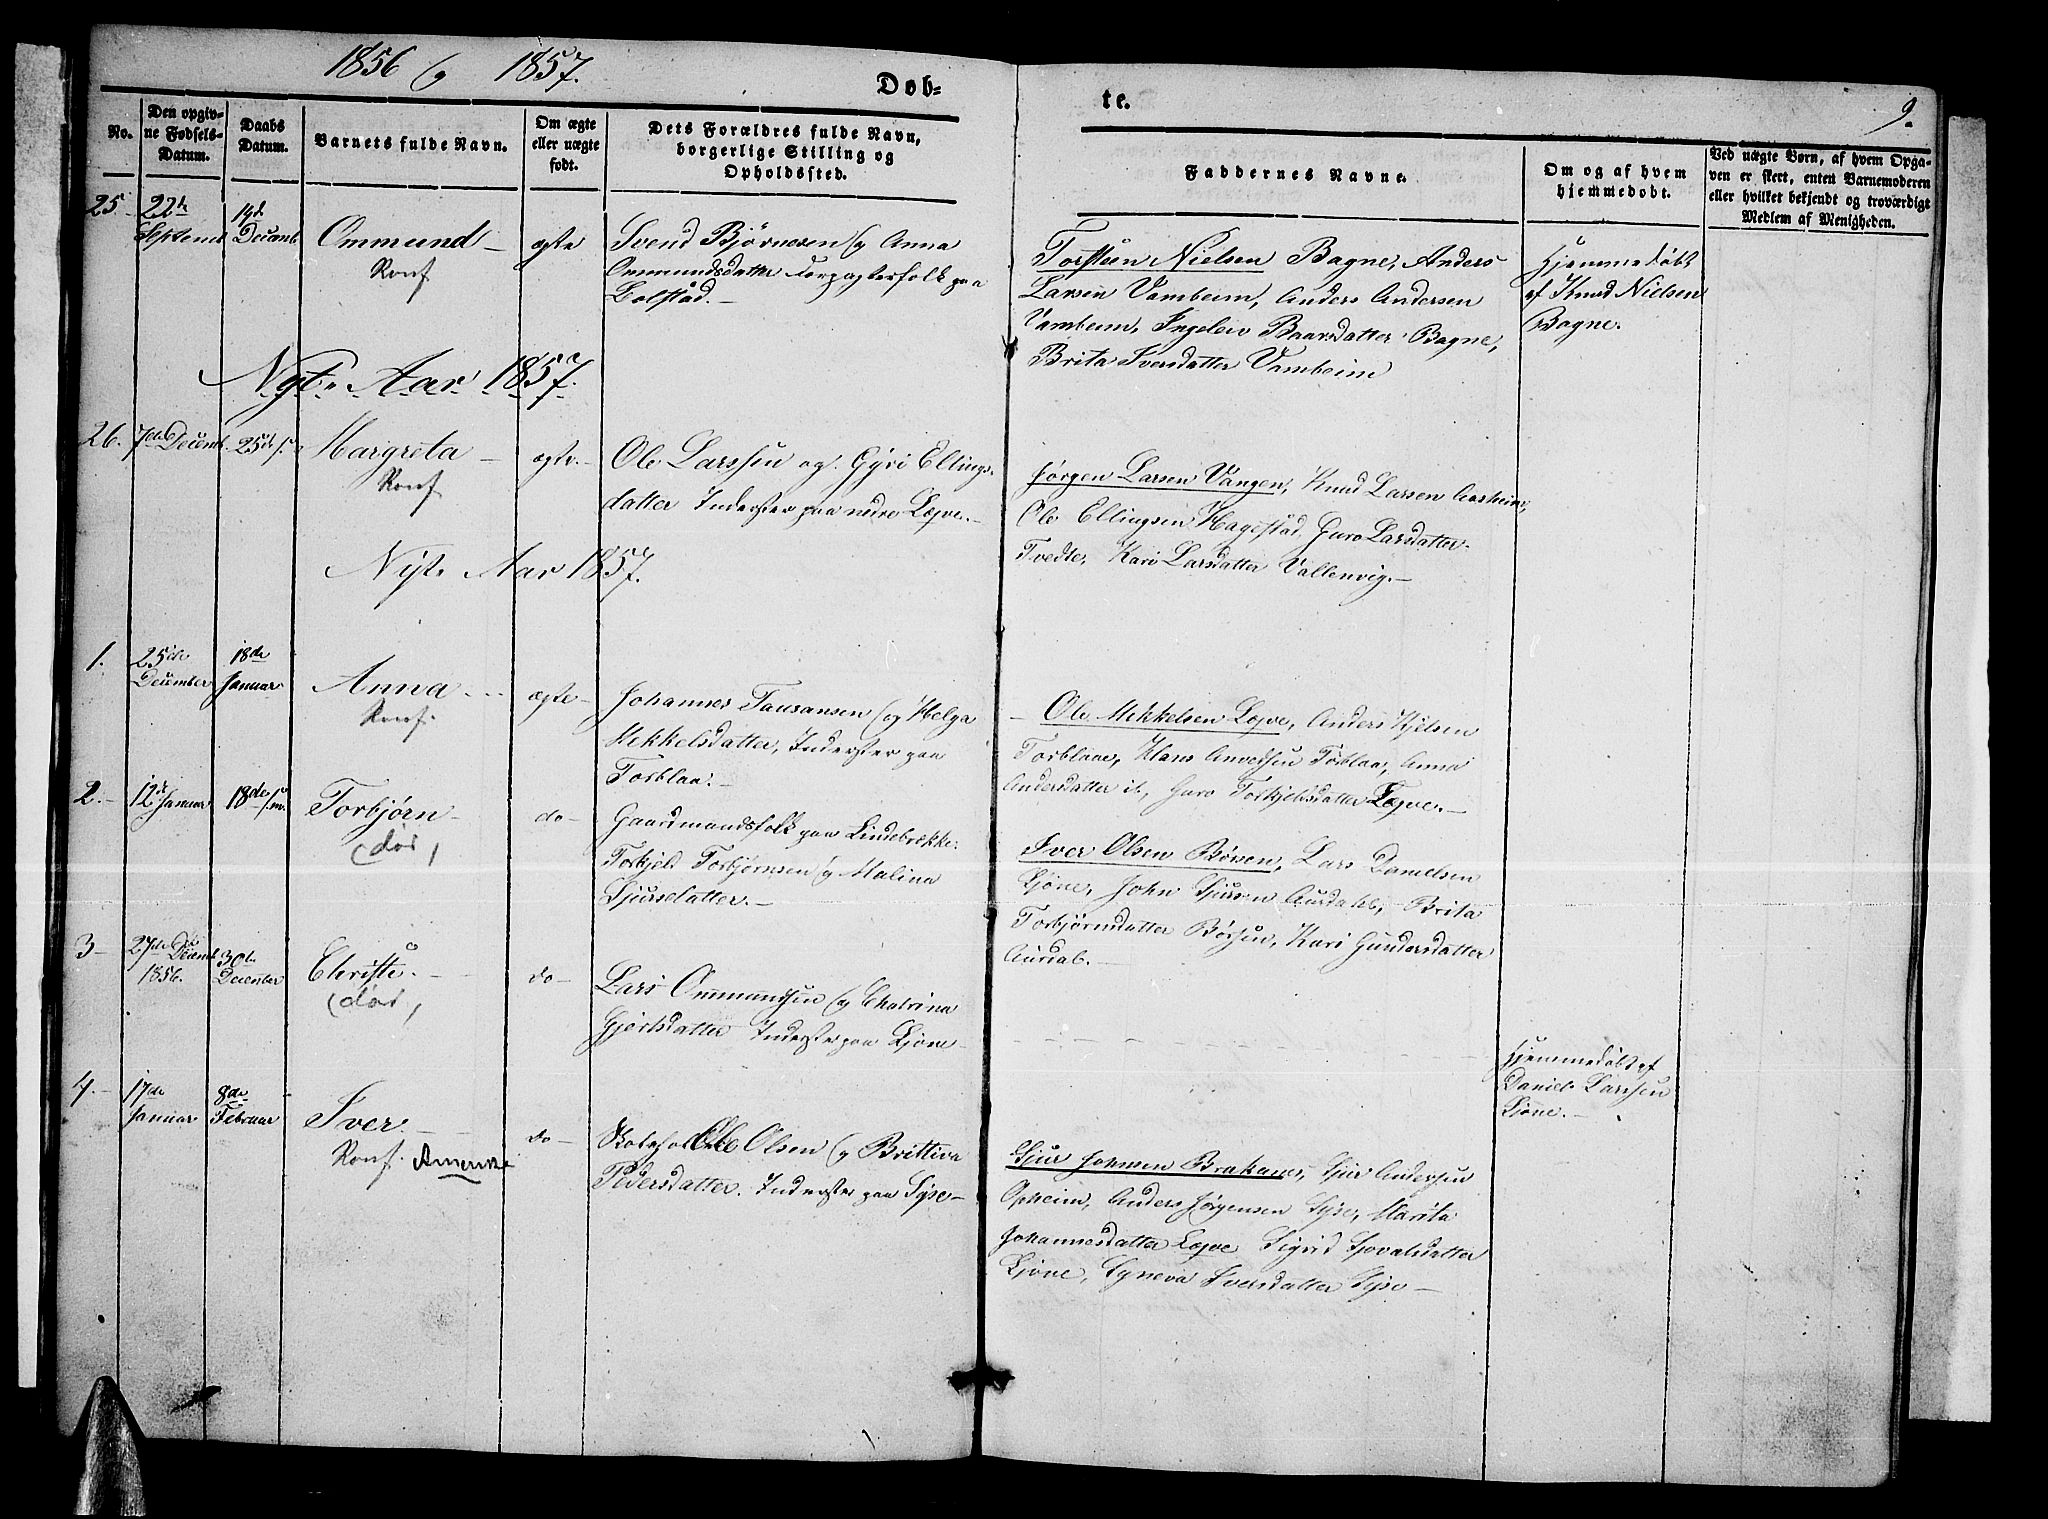 1856 og 1857.
Døb-
te.
9.
No.
Den opgiv-
ne Fødsels-
Datum.
Daabs
Datum.
Barnets fulde Navn.
Om ægte
eller uægte
født.
Dets Forældres fulde Navn,
borgerlige Stilling og
Opholdssted.
Faddernes Navne.
Om og af hvem
hjemmedøbt.
Ved uægte Børn, af hvem Opga-
ven er skeet, enten Barnemoderen
eller hvilket bekjendt og troværdigt
Medlem af Menigheden.
25
22de
Septemb
14d
Decemb
Ommund
Konf
ægte
Svend Bjørnesen og Anna
Ommundsdatter Forpagterfolk paa
Bolstad.
Torstein Nielsen Bagne, Anders
Larsen Vambeim, Anders Andersen
Vambeim, Ingeleiv Baarsdatter Bagne,
Brita Iversdatter Vambeim
Hjemmedøbt
af Knud Nielsen
Bagne.
Nyt Aar 1857.
26.
7de Decemb.
25de
Margreta
Konf
ægte.
Ole Larssen og Gyri Ellings-
datter Inderster paa nedre Legve.
Jørgen Larsen Vangen, Knud Larsen
Ole Ellingsen Hagestad, Guro Larsdatter
Tvedte, Kari Larsdatter Vallenvig.
Nyt Aar 1857.
1.
25de
December
18de
Januar
Anna
Konf.
ægte
Johannes og Helga
Mekkelsdatter, Inderster paa
Torblaa.
Ole Mekkelsen Legve, Anders Kjelsen
Torblaa, Torblaa, Anna
Andersdatter ib, Guro Torkjelsdatter Legve.
2.
12de Januar
18de
Torbjørn
(død,
do
Gaardmandsfolk paa Lindebrække
Torkjel Torbjørnsen og Malina
Sjursdatter.
Iver Olsen Børsen, Lars Danielsen
Ljøne, John Sjursen Aurdahl, Brita
Torbjørnsdatter Børsen, Kari Gundersdatter
Aurdal.
3
27de Decemb
1856.
30te
December
Christi.
(død,
do
Lars Ommundsen og Chatrina
Gjertsdatter Inderster paa Ljøne
Hjemmedøbt af
Daniel Larssen
Ljøne.
4.
17de
Januar
8de
Februar
Iver.
Konf. Amerika
do
Ole Olsen og Brittiva
Pedersdatter. Inderster paa Syse
Sjur Johnsen Brakanes, Sjur Andersen
Opheim, Anders Jørgensen Syse, Marita
Johannesdatter Legve Sigrid Sjovatsdatter
Ljøne, Syneva Iversdatter Syse